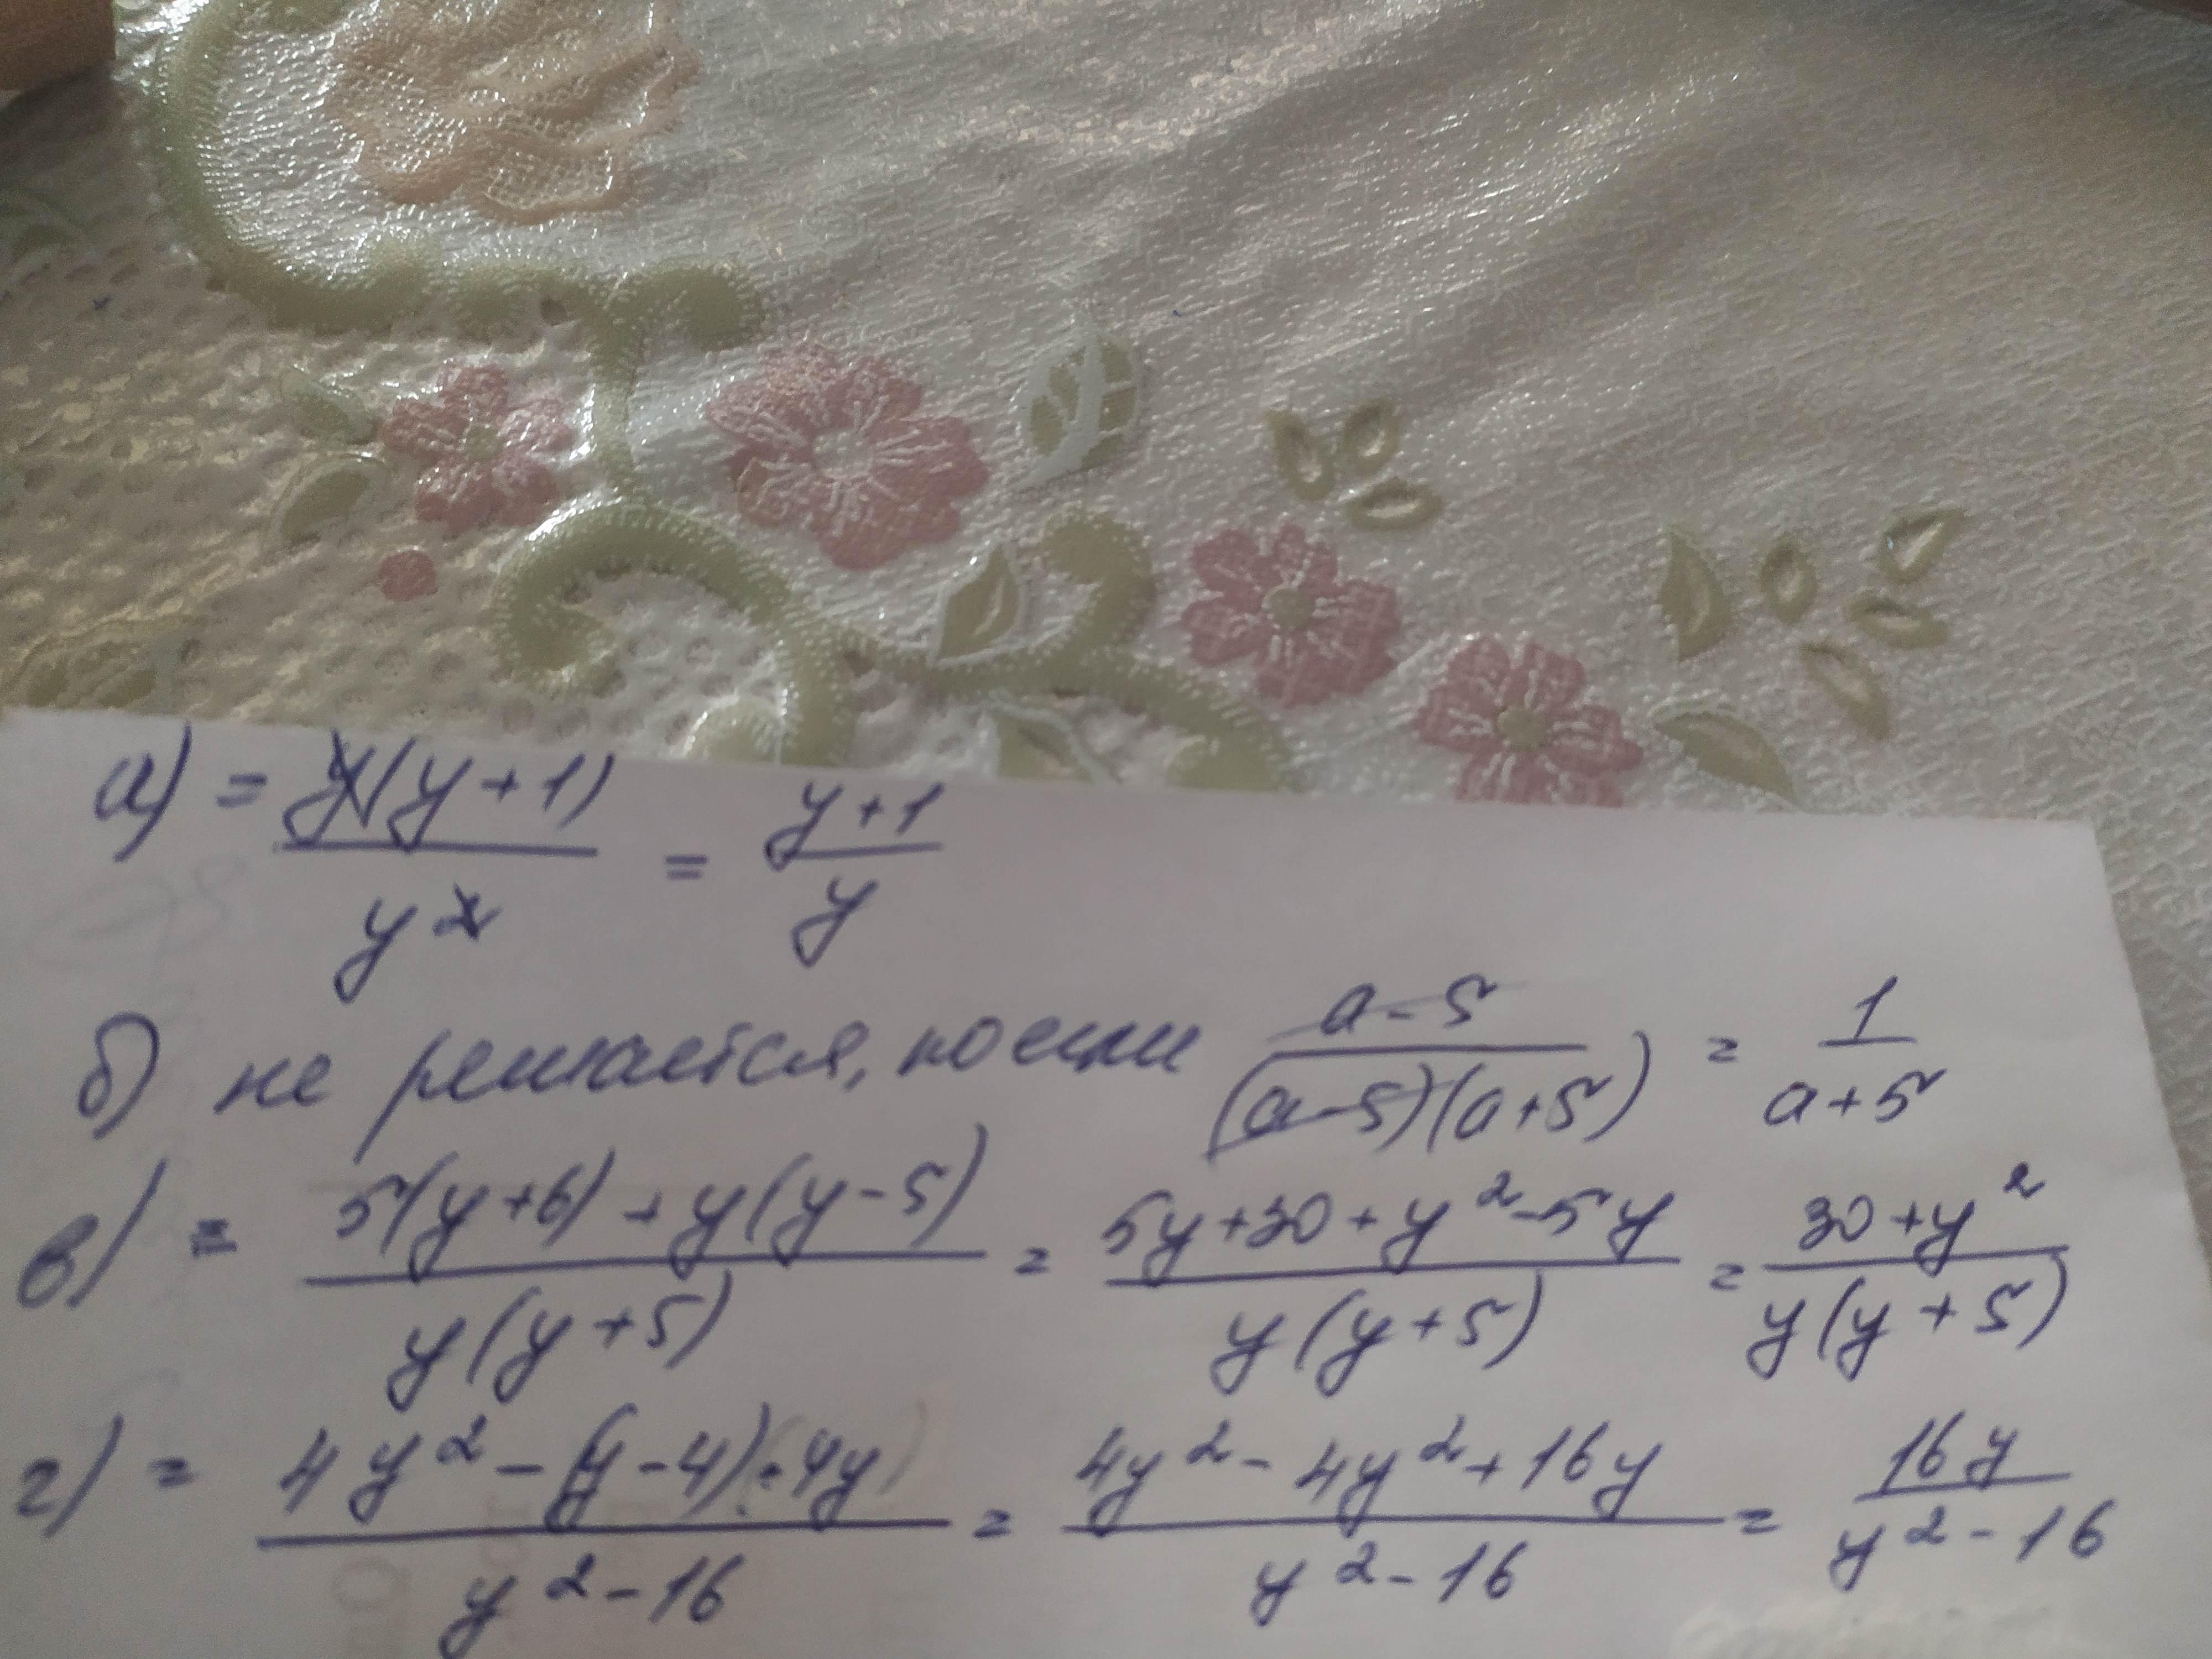 а) = y(y+1)/y² = y+1/y
б) не решается, но если a-5/(a-5)(a+5) = 1/a+5
в) = 5(y+6)+y(y-5)/y(y+5) = 5y+30+y²-5y/y(y+5) = 30+y²/y(y+5)
г) = 4y²-(y-4)·4y/y²-16 = 4y²-4y²+16y/y²-16 = 16y/y²-16